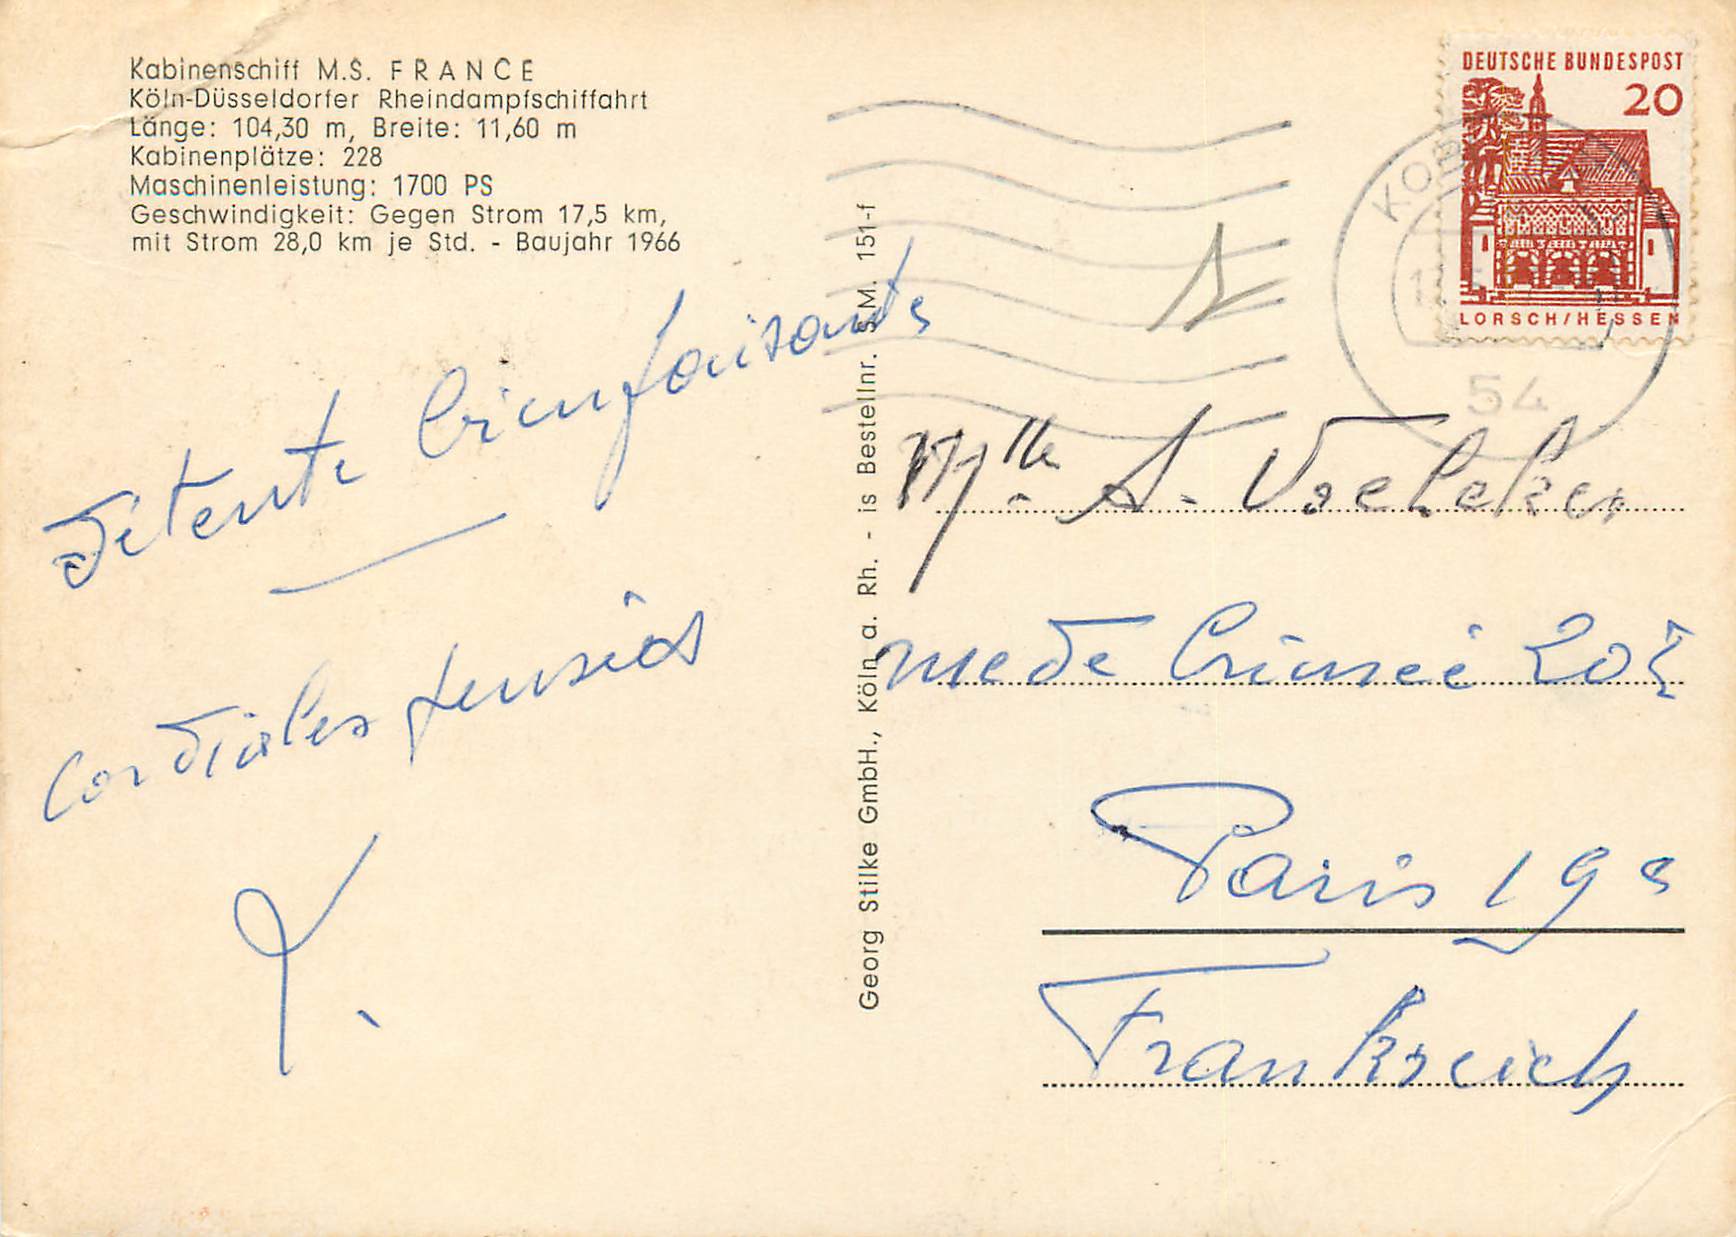 Kabinenschiff M.S. FRANCE
Köln-Düsseldorfer Rheindampfschiffahrt
Länge: 104,30 m, Breite: 11,60 m
Kabinenplätze: 228
Maschinenleistung: 1700 PS
Geschwindigkeit: Gegen Strom 17,5 km,
mit Strom 28,0 km je Std. - Baujahr 1966
Détente bienfaisante
Cordiales pensées
Georg Stilke GmbH., Köln a. Rh. - is Bestellnr. S.M. 151-f
DEUTSCHE BUNDESPOST
20
LORSCH/HESSEN
KOB
54
Mlle A. Voelcker
rue de Crimée 202
Paris 19e
Frankreich